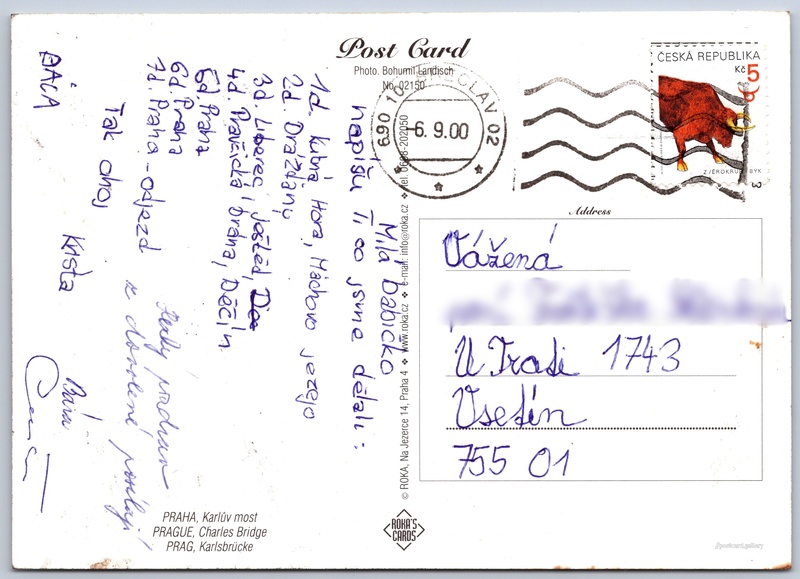 Post Card
Photo. Bohumil Landisch
No. 02150
Milá babičko
napíšu ti co jsme dělali:
1d. Kutná Hora, Máchovo jezero
2.d Drážďany
3d Liberec, Ještěd,
4d. Pravčická brána, Děčín.
5d Praha
6d Praha
7d. Praha - odjezd
Tak ahoj
Krista
BÁCA
Hezký pozdrav
z dovolené posílají
Bára
© ROKA, Na Jezerce 14, Praha 4 ❖ www.roka.cz ❖ e-mail: info@roka.cz ❖ tel. 0608-202050
690 1 SLAV 02
-6. 9.00
ČESKÁ REPUBLIKA
Kč 5
ZVĚROKRUH BÝK
3
Address
Vážená
U Trati 1743
Vsetín
755 01
PRAHA, Karlův most
PRAGUE, Charles Bridge
PRAG, Karlsbrücke
ROKA'S
CARDS
//postcard.gallery